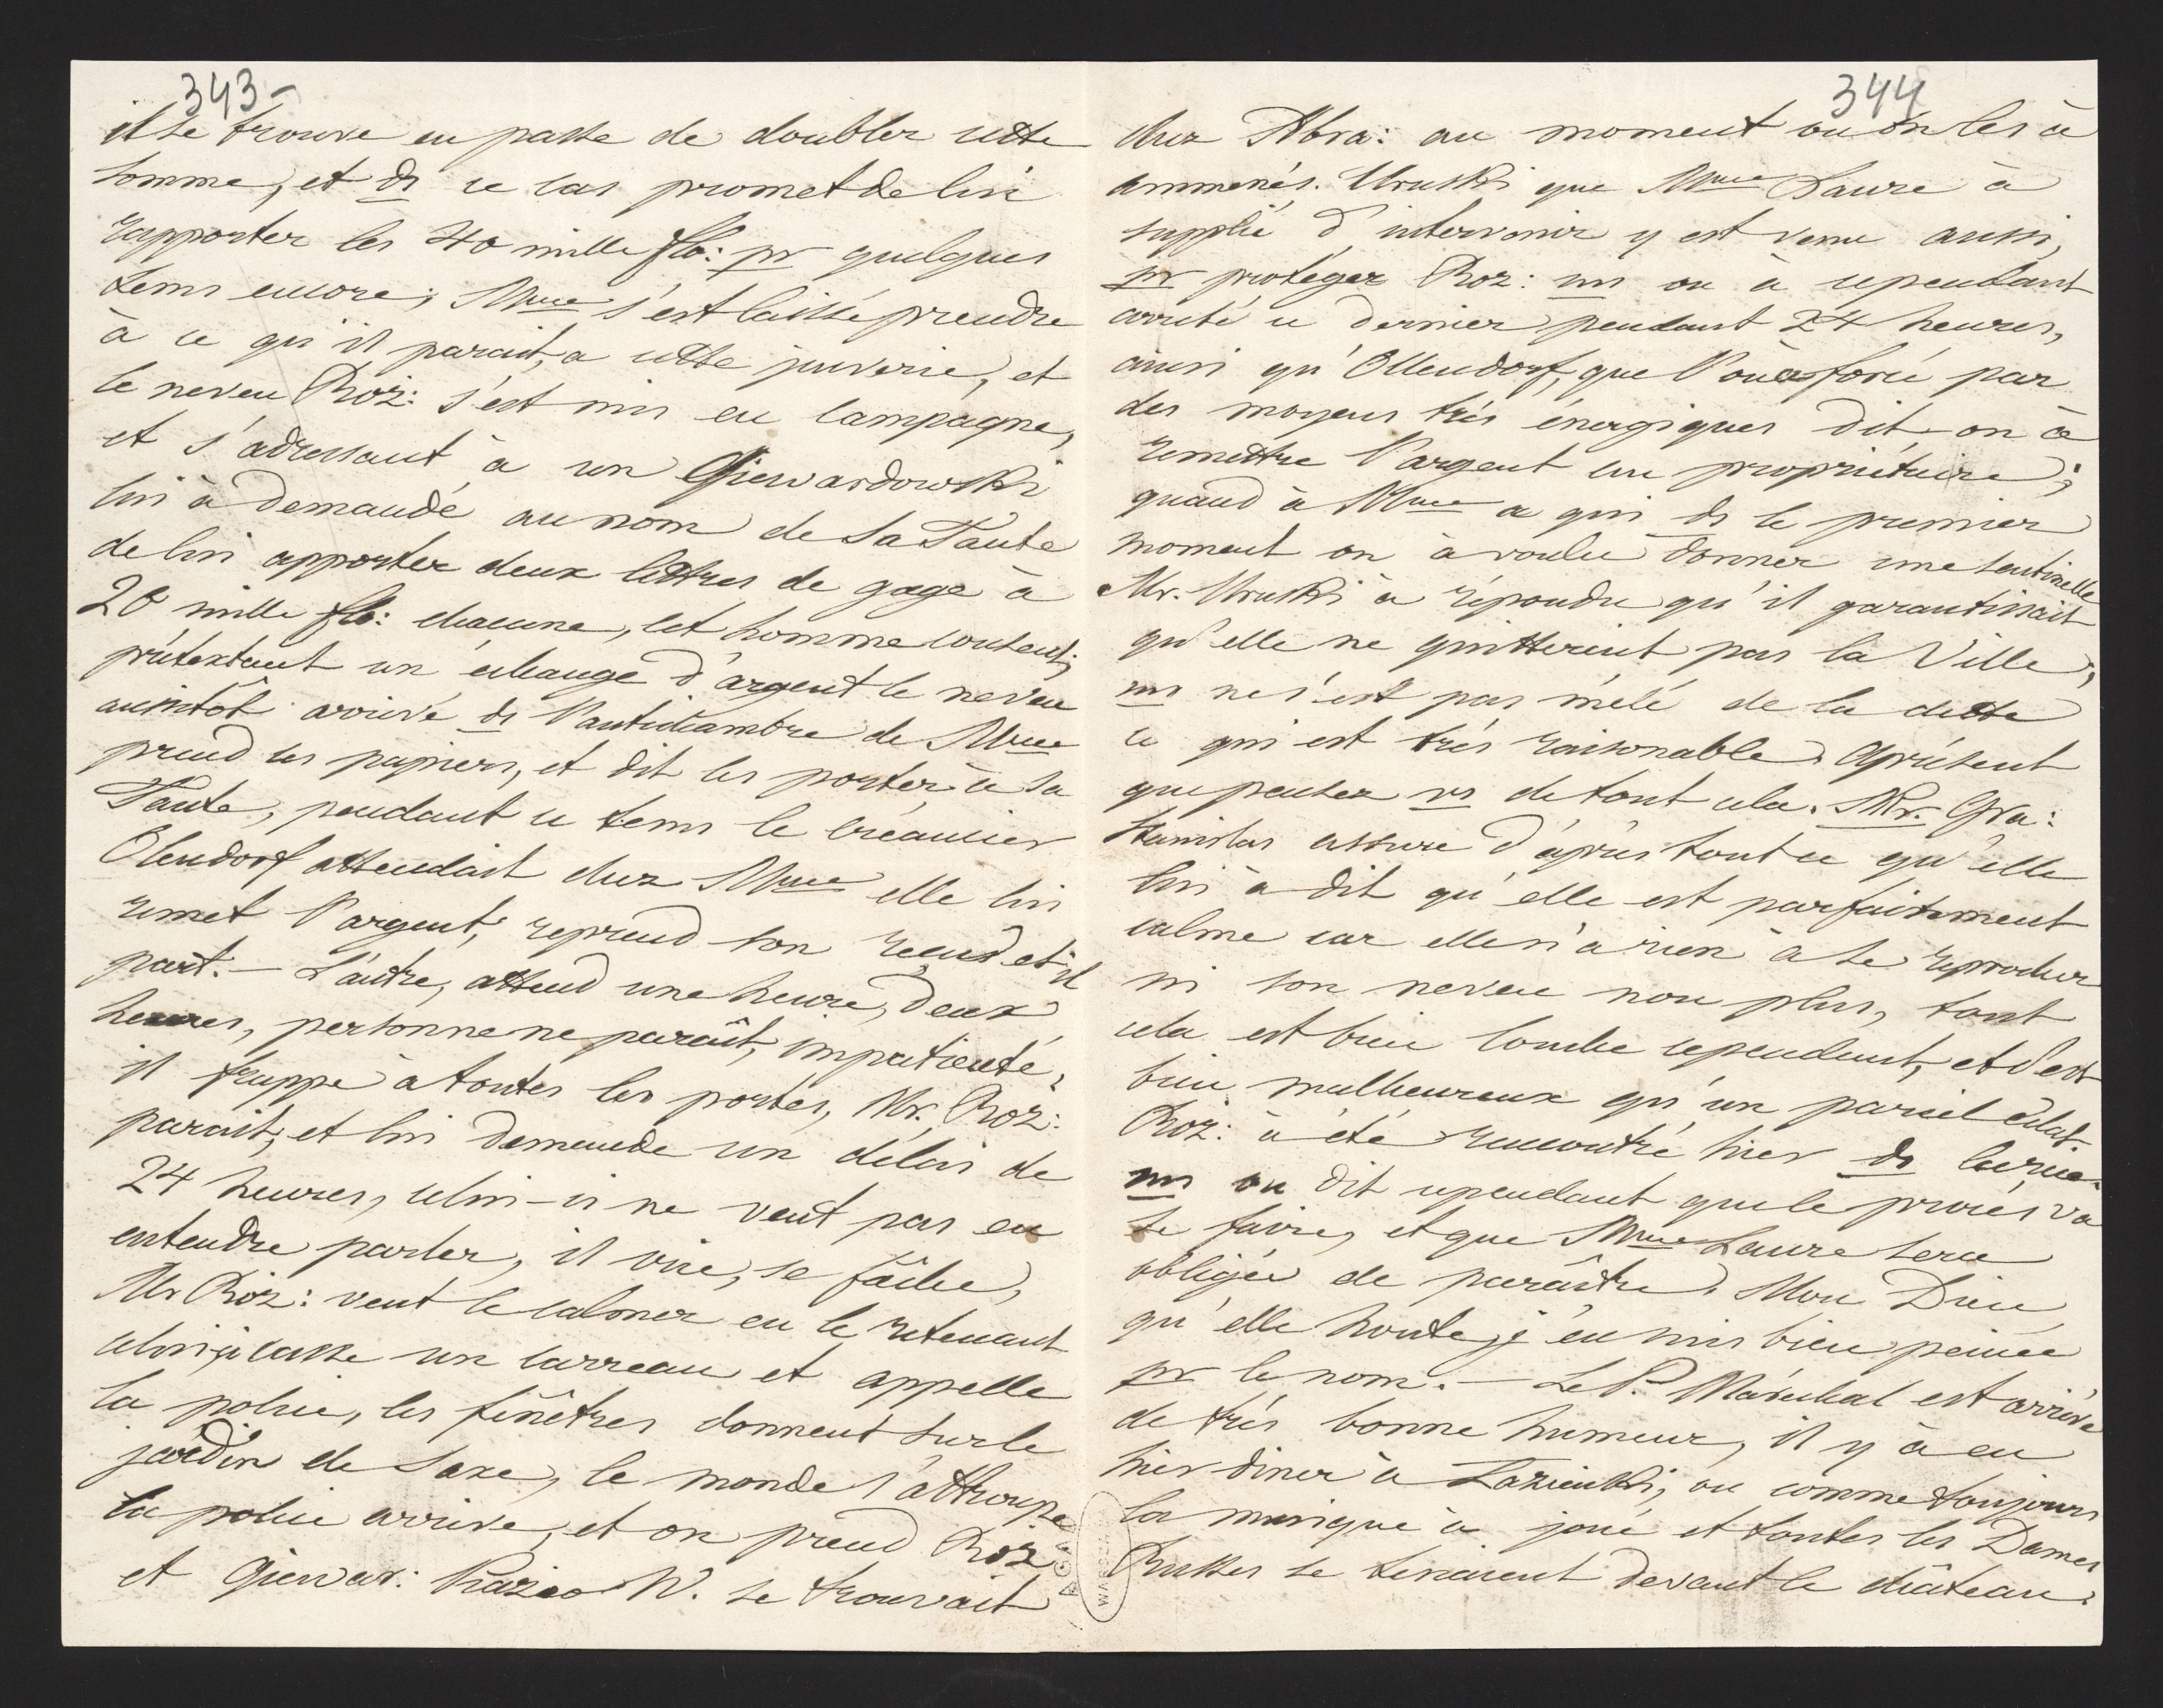 343-
il se trouve en passe de doubler cette
somme, et ds ce cas promet de lui
rapporter les 40 mille flo: pr quelques
tems encore; Mme s'est laissée prendre
à ce qu'il parait, a cette juiverie, et
le neveu Roz: s'est mis en campagne,
et s'adressant à un Giewardowski
lui à demandé au nom de sa Tante
de lui apporter deux lettres de gage à
20 mille flo: chacune, cet homme consent;
prétextant un échange d'argent le neveu
aussitôt arrivé ds l'antichambre de Mme
prend les papiers, et dit les porter à sa
Tante, pendant ce tems le créancier
Olendorf attendait chez Mme elle lui
remet l'argent, reprend son recu et il
part. — L'autre, attend une heure, deux
heures, personne ne parait, impatienté,
il frappe à toutes les portes, Mr. Roz:
parait, et lui demande un délai de
24 heures, celui-ci ne veut pas en
entendre parler, il crie, se fâche,
Mr Roz: veut le calmer en le retenant
celui ci casse un carreau et appelle
la police, les fenêtres donnent sur le
jardin de Saxe, le monde s'attroupe
la police arrive, et on prend Roz:
et Giewar: Kazio W. se trouvait
344
chez Abra: au moment ou on les à
ammenés. Uruski que Mme Laure à
supplié d'intervenir y est venu aussi,
pr protéger Roz: ms on à cependant
arrêté ce dernier pendant 24 heures,
ainsi qu'Ollendorf, que l'on a forcé par
des moyens très énergiques dit-on à
remettre l'argent au propriétaire;
quand à Mme a qui ds le premier
moment on à voulu donner une sentinelle
Mr. Uruski à répondu qu'il garantissait
qu'elle ne quitterait pas la Ville,
ms ne s'est pas mêlé de la dette
ce qui est très raisonable. Aprésent
que pensez vs de tout cela. Mr. Gra:
Stanislas assure d'après tout ce qu'elle
lui à dit qu'elle est parfaitement
calme car elle n'a rien à se reprocher
ni son neveu non plus, tout
cela est bien louche cependant, et c'est
bien malheureux qu'un pareil éclat.
Roz: à été rencontré hier ds la rue.
ms on dit cependant que le procès va
se faire, et que Mme Laure sera
obligée de paraître. Mon Dieu
qu'elle honte, j'en suis bien peinée
pr le nom. — Le P. Maréchal est arrivé
de très bonne humeur, il y à eu
hier diner à Lazienki, ou comme toujours
la musique à joué et toutes les Dames
Russes se tenaient devant le château.